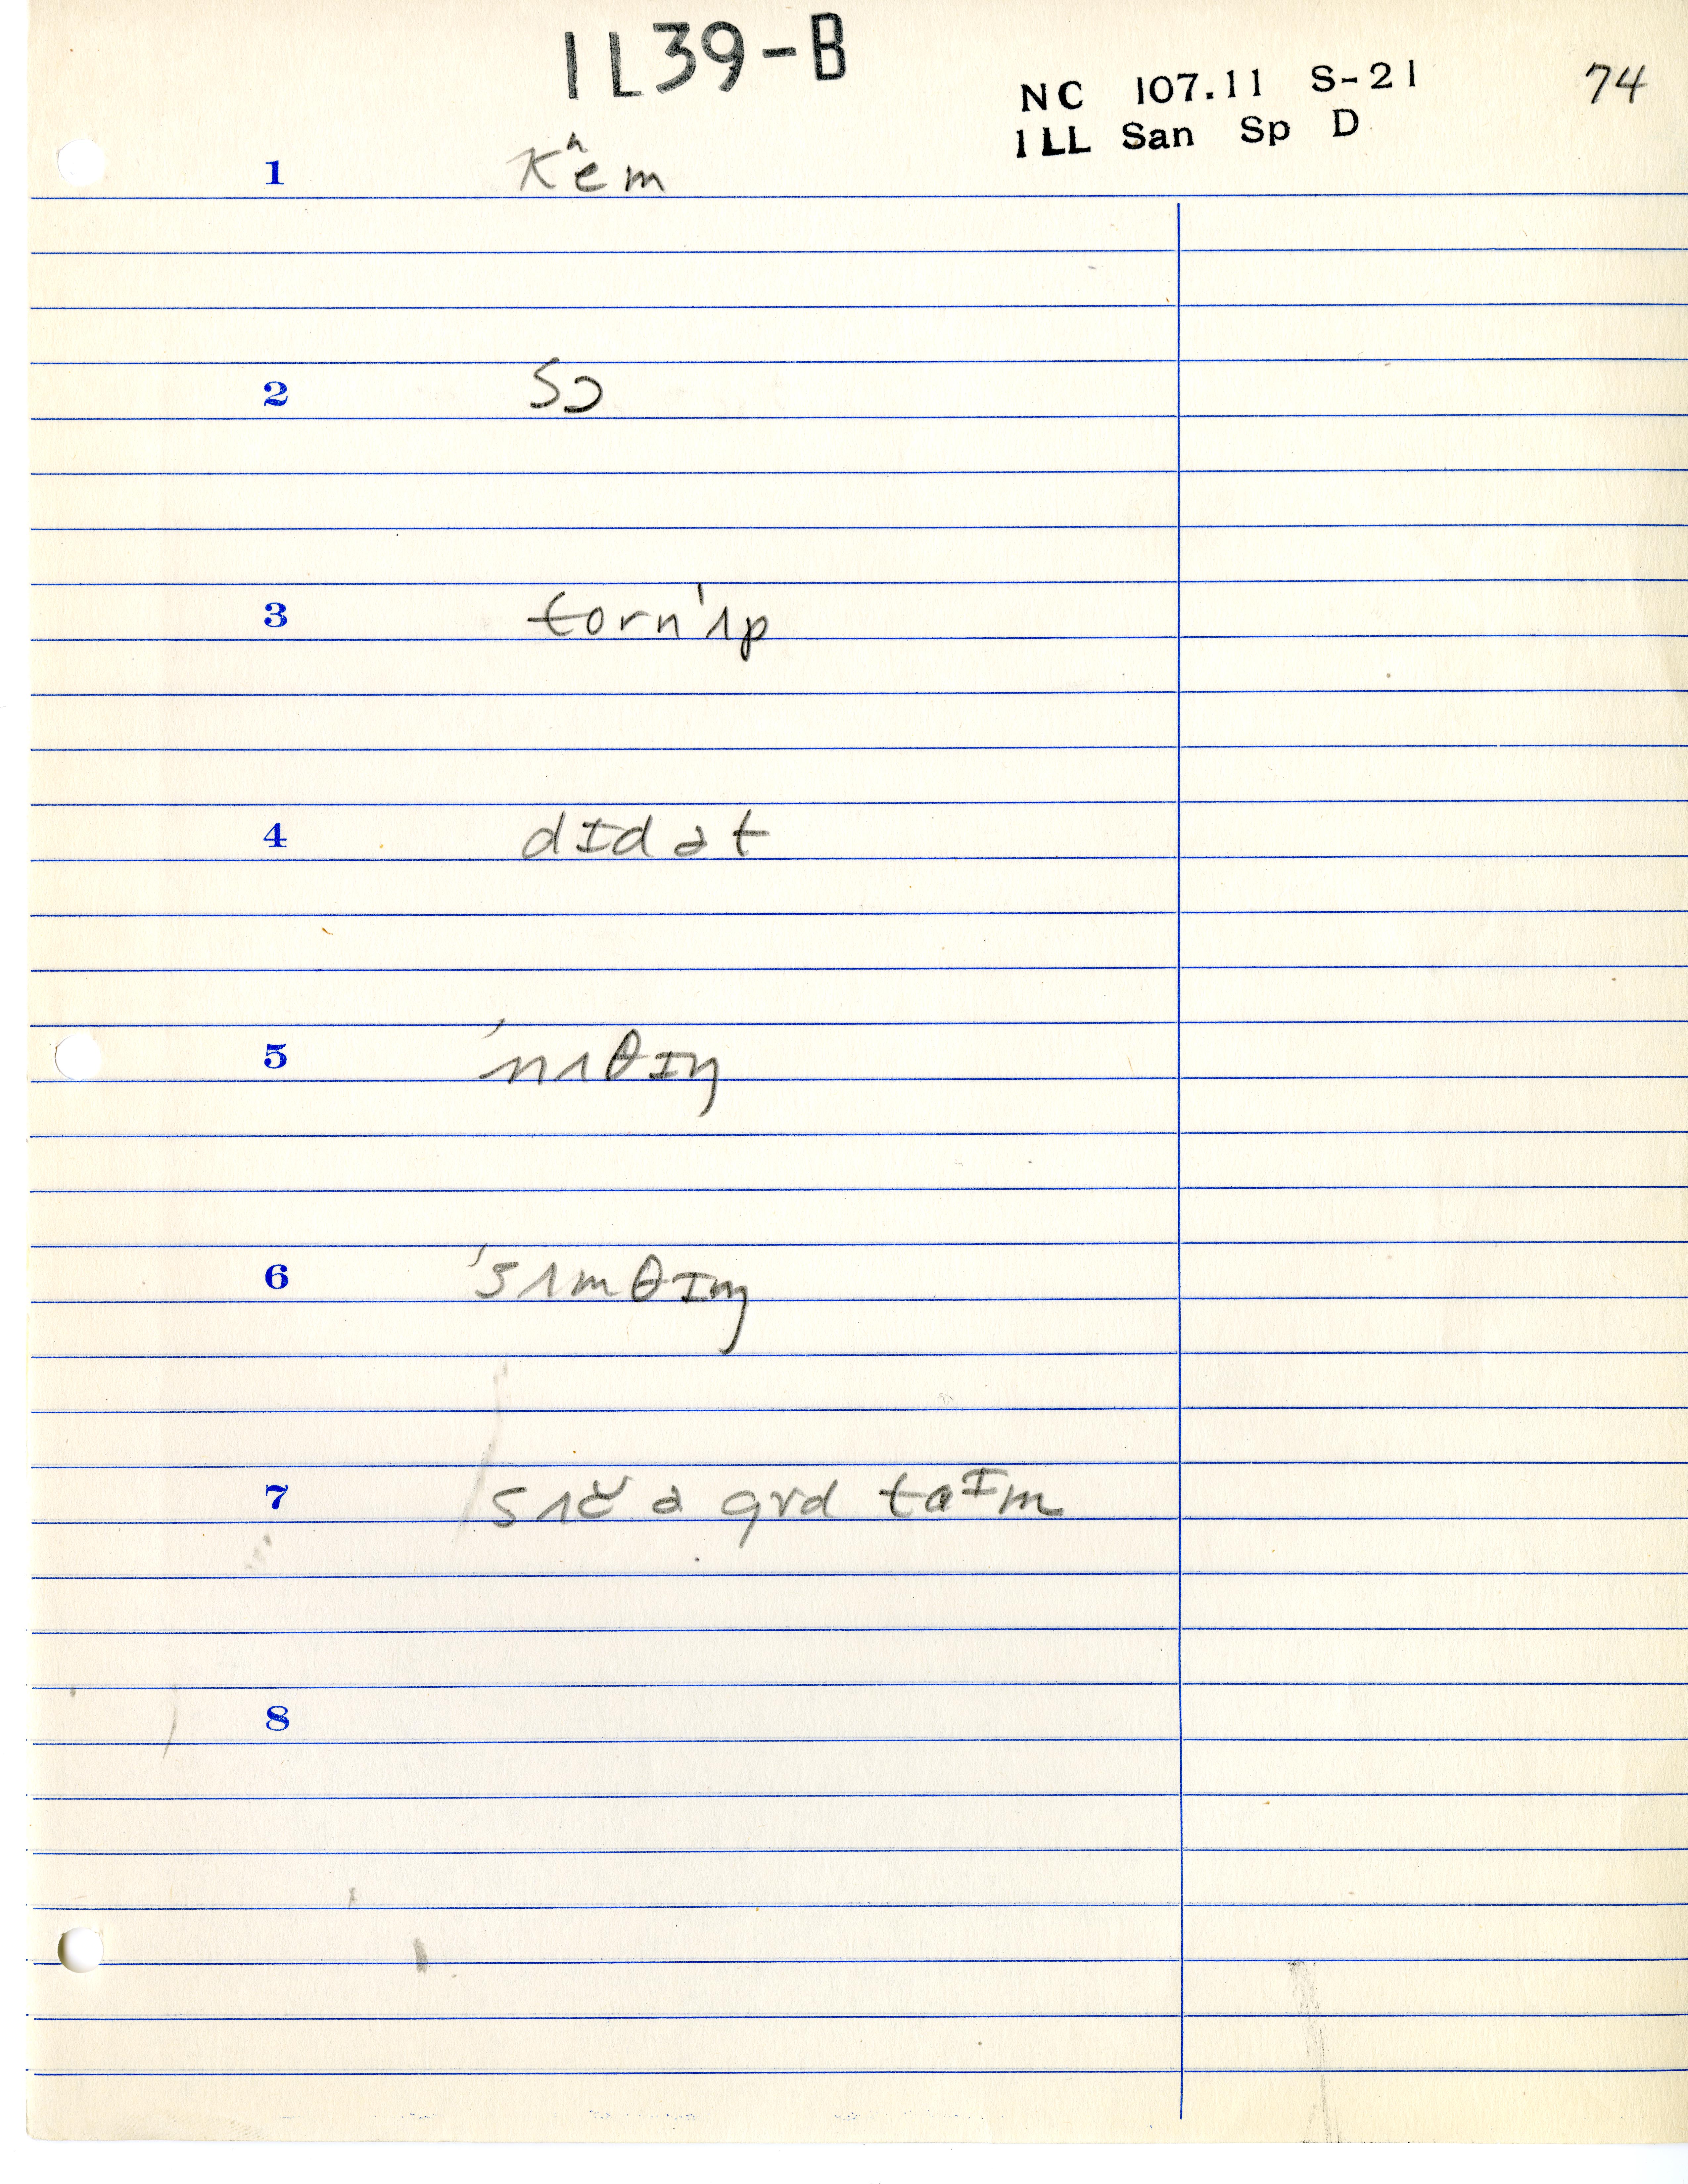 1L39-B
NC 107.11 S-21
1LL San Sp D
74
1 kʰem
2 sɔ
3 torn'ʌp
4 dɪd ət
5 'nʌθɪŋ
6 'sʌmθɪŋ
7 sʌč ə gʊd taᶦm
8